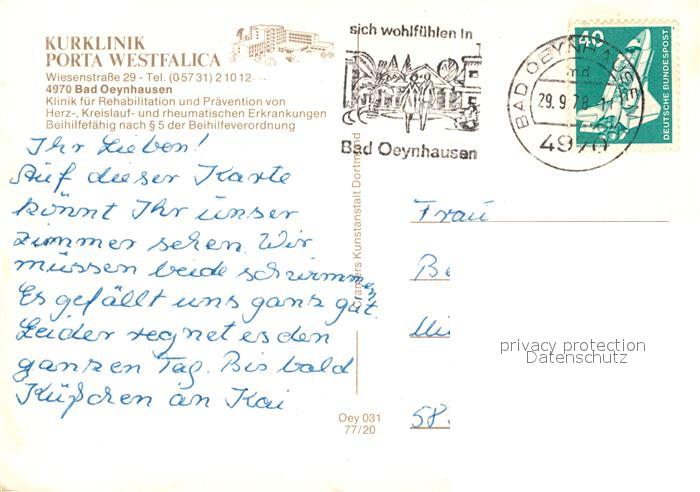 KURKLINIK
PORTA WESTFALICA
Wiesenstraße 29 - Tel. (0 57 31) 2 10 12
4970 Bad Oeynhausen
Klinik für Rehabilitation und Prävention von
Herz-, Kreislauf- und rheumatischen Erkrankungen
Beihilfefähig nach § 5 der Beihilfeverordnung
sich wohlfühlen in
Bad Oeynhausen
BAD OEYNHAUSEN
md
29.9.78
4970
40
DEUTSCHE BUNDESPOST
Ihr Lieben!
Auf dieser Karte
könnt Ihr unser
Zimmer sehen. Wir
müssen beide schwimmen
Es gefällt uns ganz gut.
Leider regnet es den
ganzen Tag. Bis bald
Küßchen an Kai
Cramers Kunstanstalt Dortmund
Oey 031
77/20
Frau
Be
58
privacy protection
Datenschutz